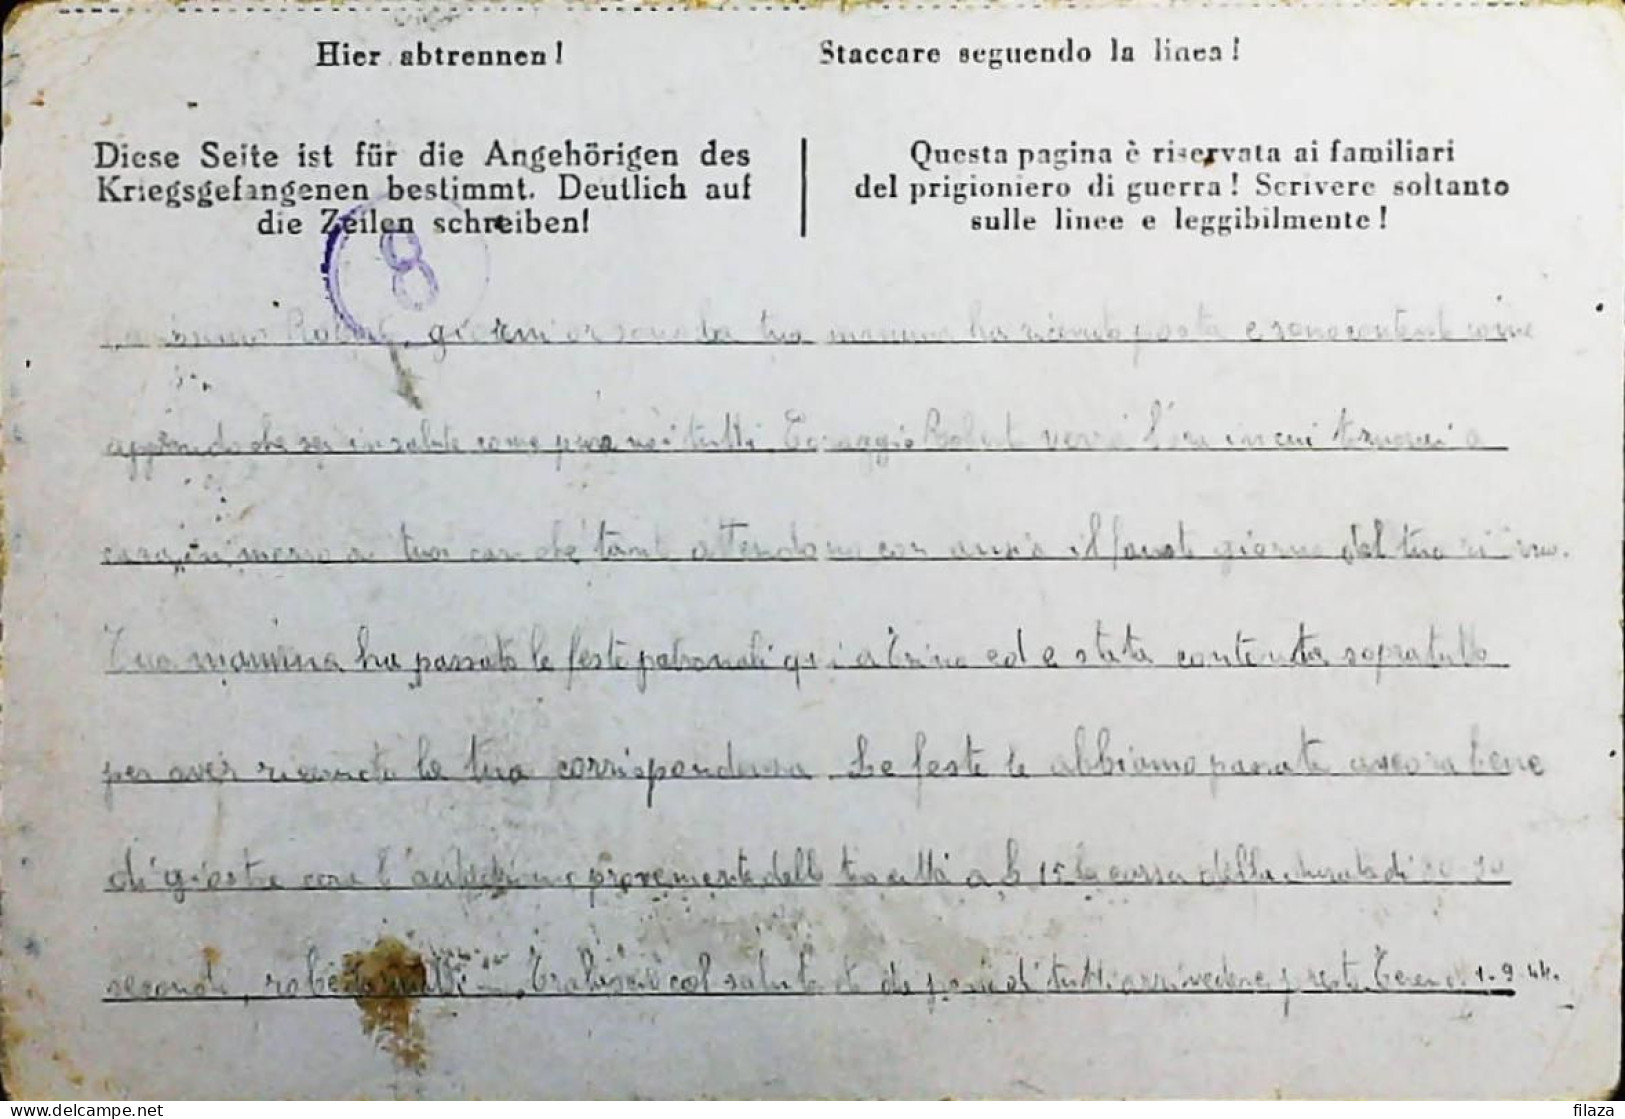 Hier abtrennen!
Staccare seguendo la linea!
Diese Seite ist für die Angehörigen des
Kriegsgefangenen bestimmt. Deutlich auf
die Zeilen schreiben!
Questa pagina è riservata ai familiari
del prigioniero di guerra! Scrivere soltanto
sulle linee e leggibilmente!
8
giorni or sono la tua mamma ha ricevuto posta e sono contenti come
apprendo che sei in salute come pure noi tutti. Coraggio Robert verrà l'ora in cui
casa, in mezzo a tuoi cari che tanto attendono con ansia il fausto giorno del tuo
Tua mamma ha passato le feste patronali qui a Trino ed è stata contenta sopratutto
per aver ricevuto la tua corrispondenza. Le feste le abbiamo passate ancora bene
di giostre con l' della a L 15 la corsa della durata di
secondi, roba da matti col saluto di tutti arrivederci presto 1-9-44.
delcampe.net
filaza